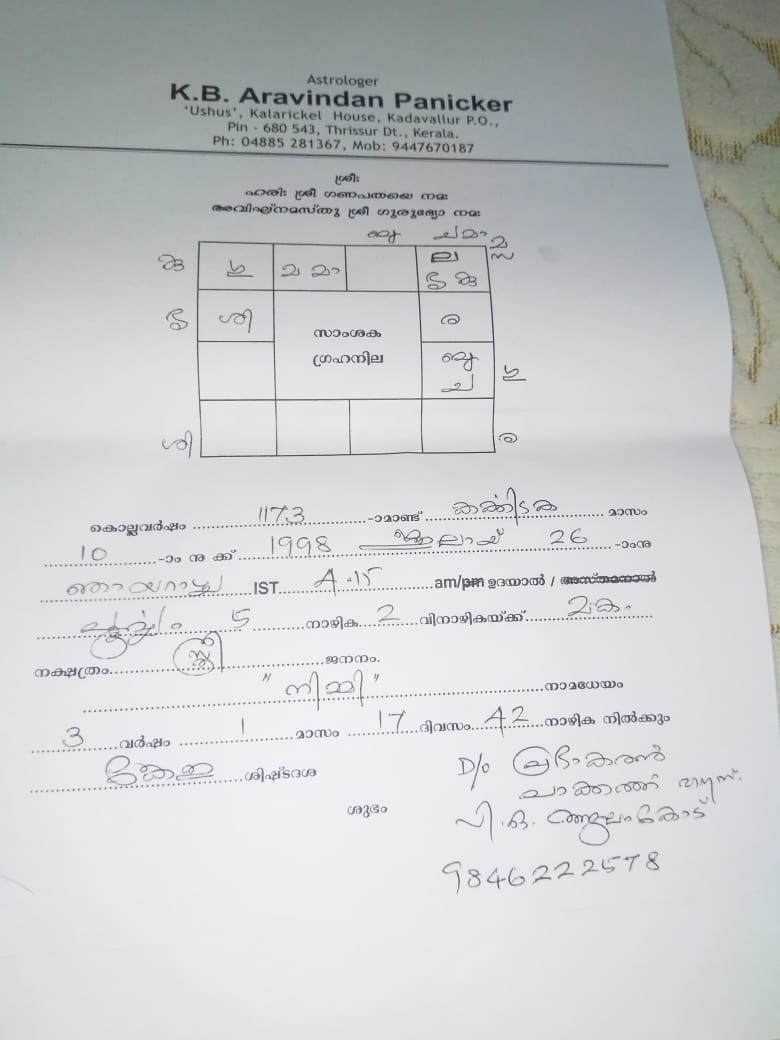 Astrologer
K.B. Aravindan Panicker
'Ushus', Kalarickel House, Kadavallur P.O.,
Pin - 680 543, Thrissur Dt., Kerala.
Ph: 04885 281367, Mob: 9447670187
ശ്രീഃ
ഹരിഃ ശ്രീ ഗണപതയെ നമഃ
അവിഘ്നമസ്തു ശ്രീ ഗുരുഭ്യോ നമഃ
ല
ശി
ര
സാംശക
ഗ്രഹനില
ച
ശി
ര
കൊല്ലവർഷം 1173 -ാമാണ്ട് കർക്കിടക മാസം
10 -ാം നു ക്ക് 1998 ജൂലായ് 26 -ാംനു
ഞായറാഴ്ച IST 4.15 am/pm ഉദയാൽ / അസ്തമനാൽ
5 നാഴിക 2 വിനാഴികയ്ക്ക് മകം
നക്ഷത്രം സ്ത്രീ ജനനം.
" നിമ്മി " നാമധേയം
3 വർഷം 1 മാസം 17 ദിവസം 42 നാഴിക നിൽക്കും
ശിഷ്ടദശ
ശുഭം
D/o പ്രഭാകരൻ
പി.ഒ.
9846222578